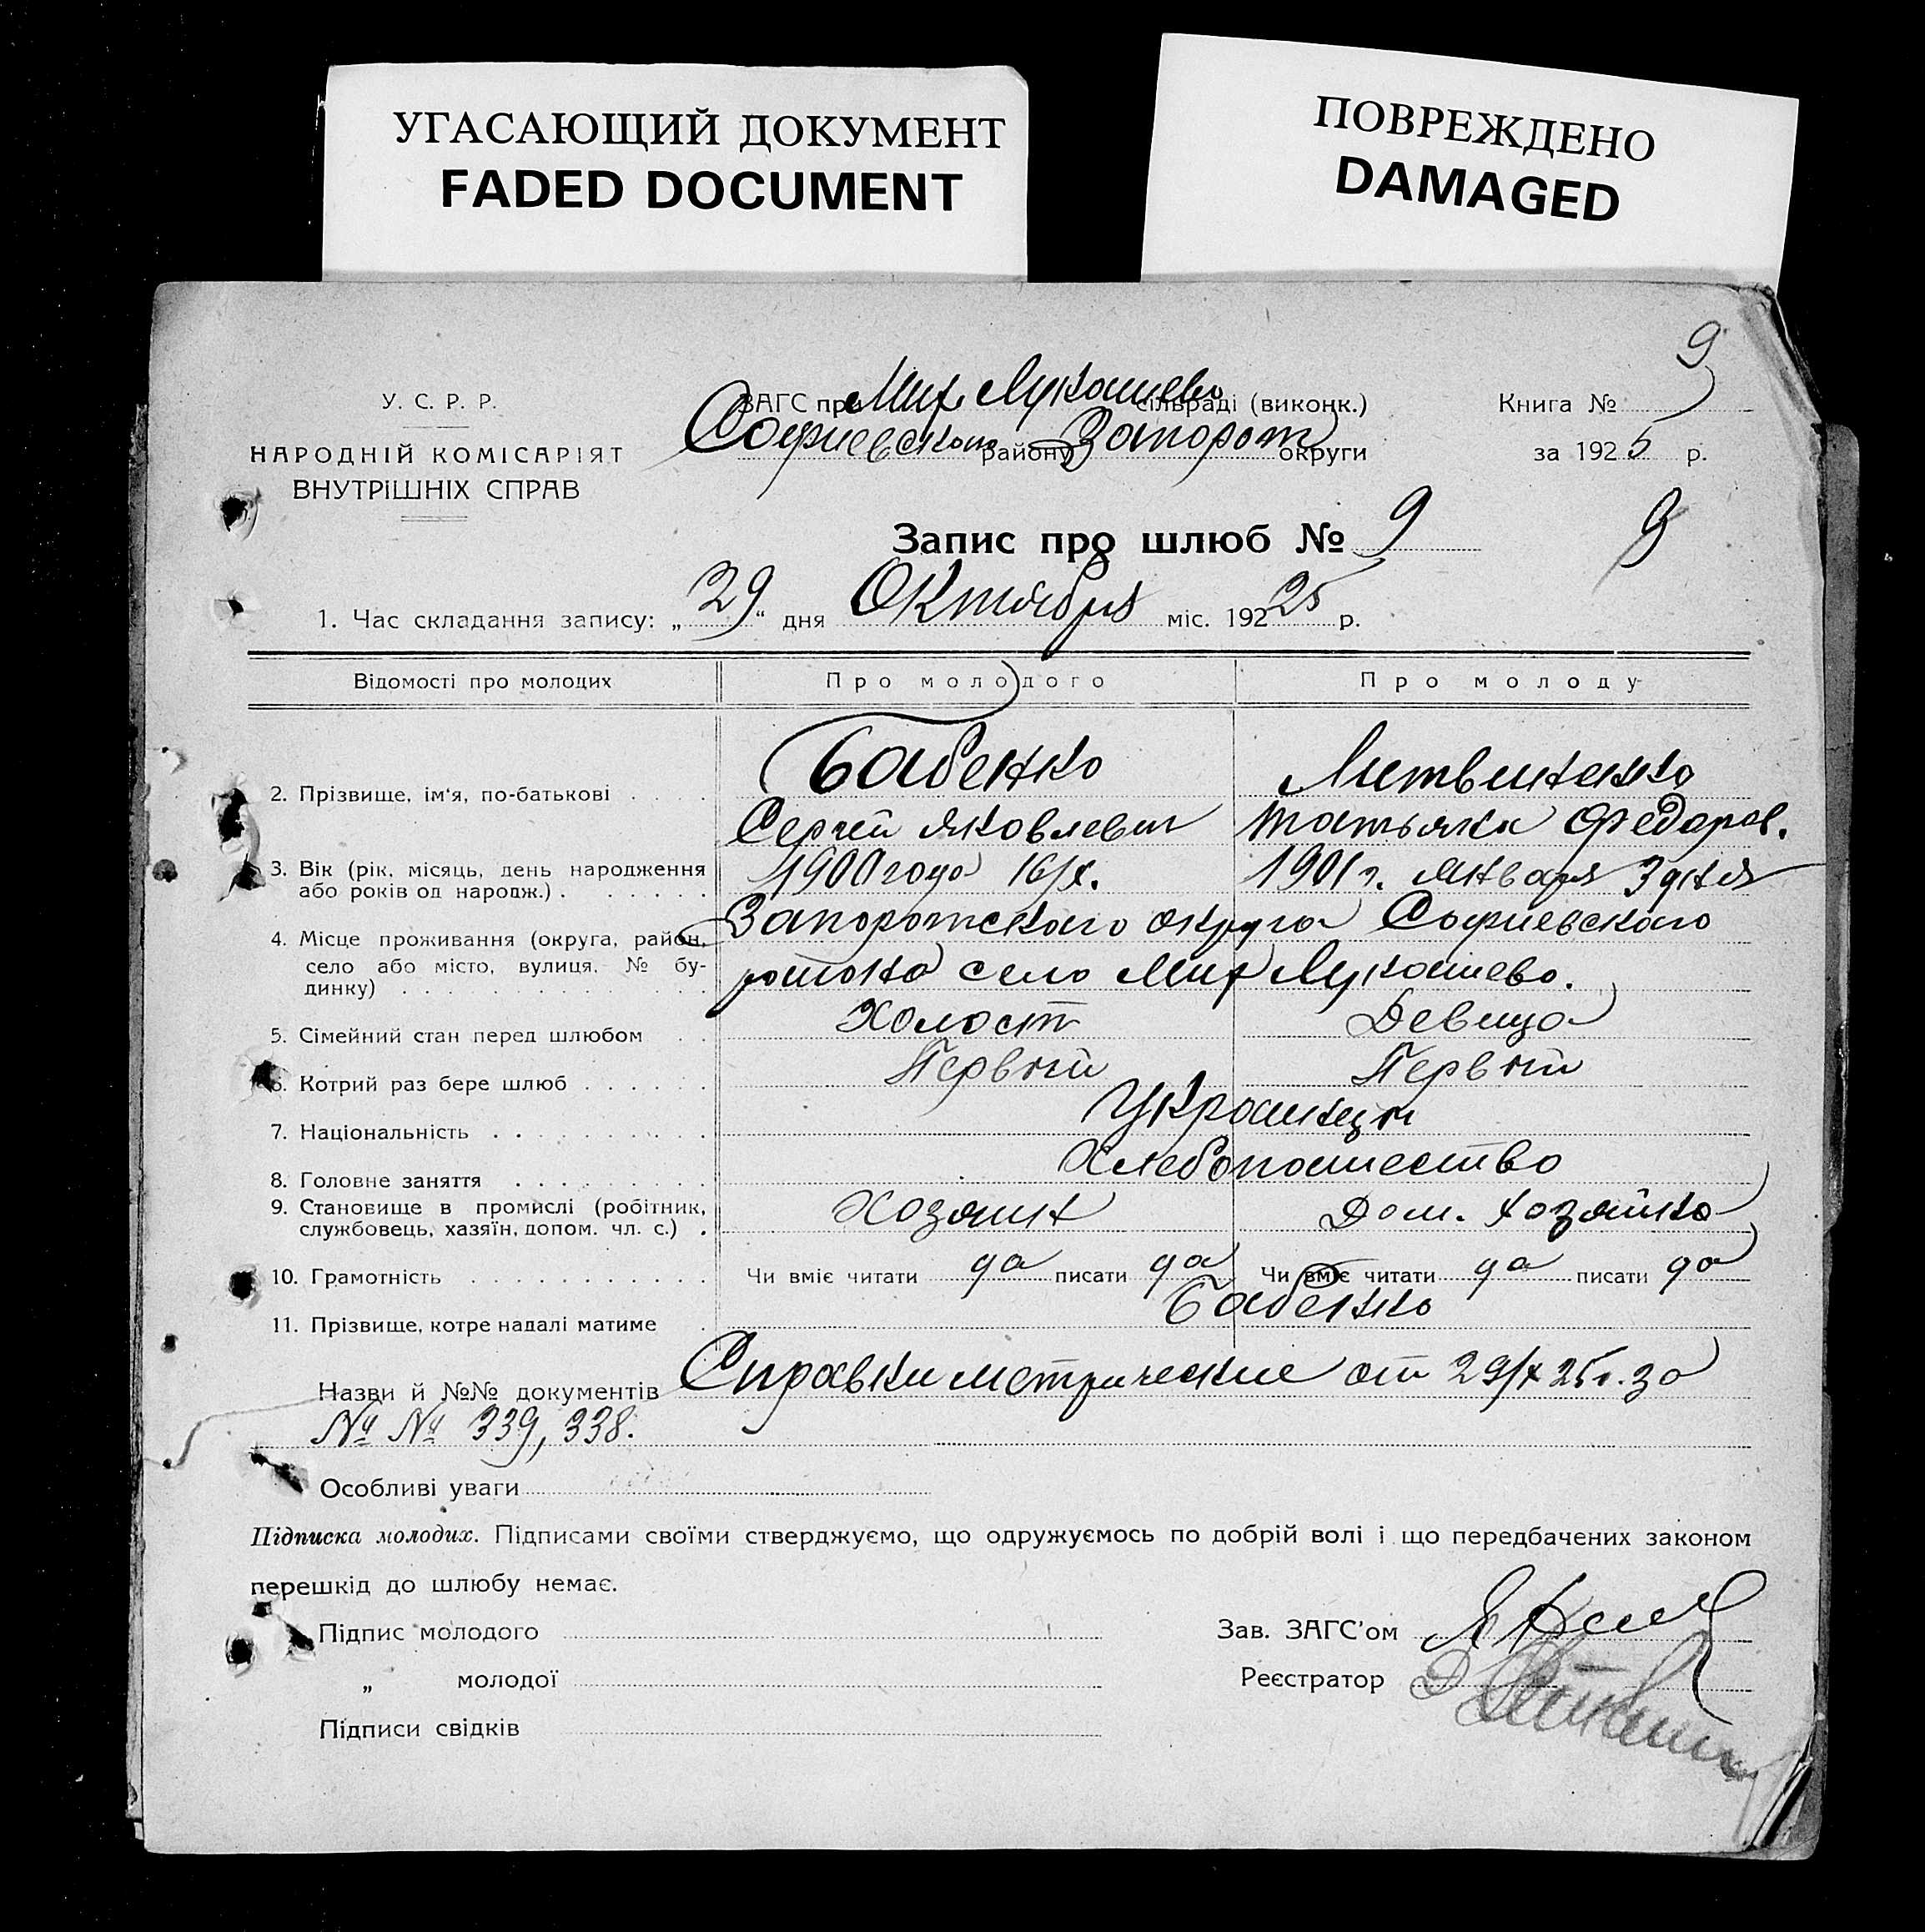 УГАСАЮЩИЙ ДОКУМЕНТ
FADED DOCUMENT
ПОВРЕЖДЕНО
DAMAGED
9
У. С. Р. Р.
НАРОДНІЙ КОМІСАРІЯТ
ВНУТРІШНІХ СПРАВ
ЗАГС при Мих Лукашево сільраді (виконк.)
Софиевском району Запорож округи
Книга №
за 1925 р.
Запис про шлюб № 9
9
1. Час складання запису: „29“ дня Октября міс. 19225 р.
Відомості про молодих Про молодого Про молоду
2. Прізвище, ім'я, по-батькові Бабенко Литвиненко
Сергей Яковлевич Татьяна Федоров.
3. Вік (рік, місяць, день народження 1900 года 16/X. 1901 г. Января 3 дня
або років од народж.)
4. Місце проживання (округа, район, Запорожского округа Софиевского
село або місто, вулиця, № бу- района село Мих Лукашево.
динку)
5. Сімейний стан перед шлюбом Холост Девица
6. Котрий раз бере шлюб Первый Первый
7. Національність Украинцы
8. Головне заняття Хлебопашество
9. Становище в промислі (робітник, Хозяин Дом. хозяйка
службовець, хазяїн, допом. чл. с.)
10. Грамотність Чи вміє читати да писати да Чи вміє читати да писати да
11. Прізвище, котре надалі матиме Бабенко
Назви й №№ документів Справки метрические от 29/X 25 г. за
№ № 339, 338.
Особливі уваги
Підписка молодих. Підписами своїми стверджуємо, що одружуємось по добрій волі і що передбачених законом
перешкід до шлюбу немає.
Підпис молодого
Зав. ЗАГС'ом
„ молодої
Реєстратор
Підписи свідків